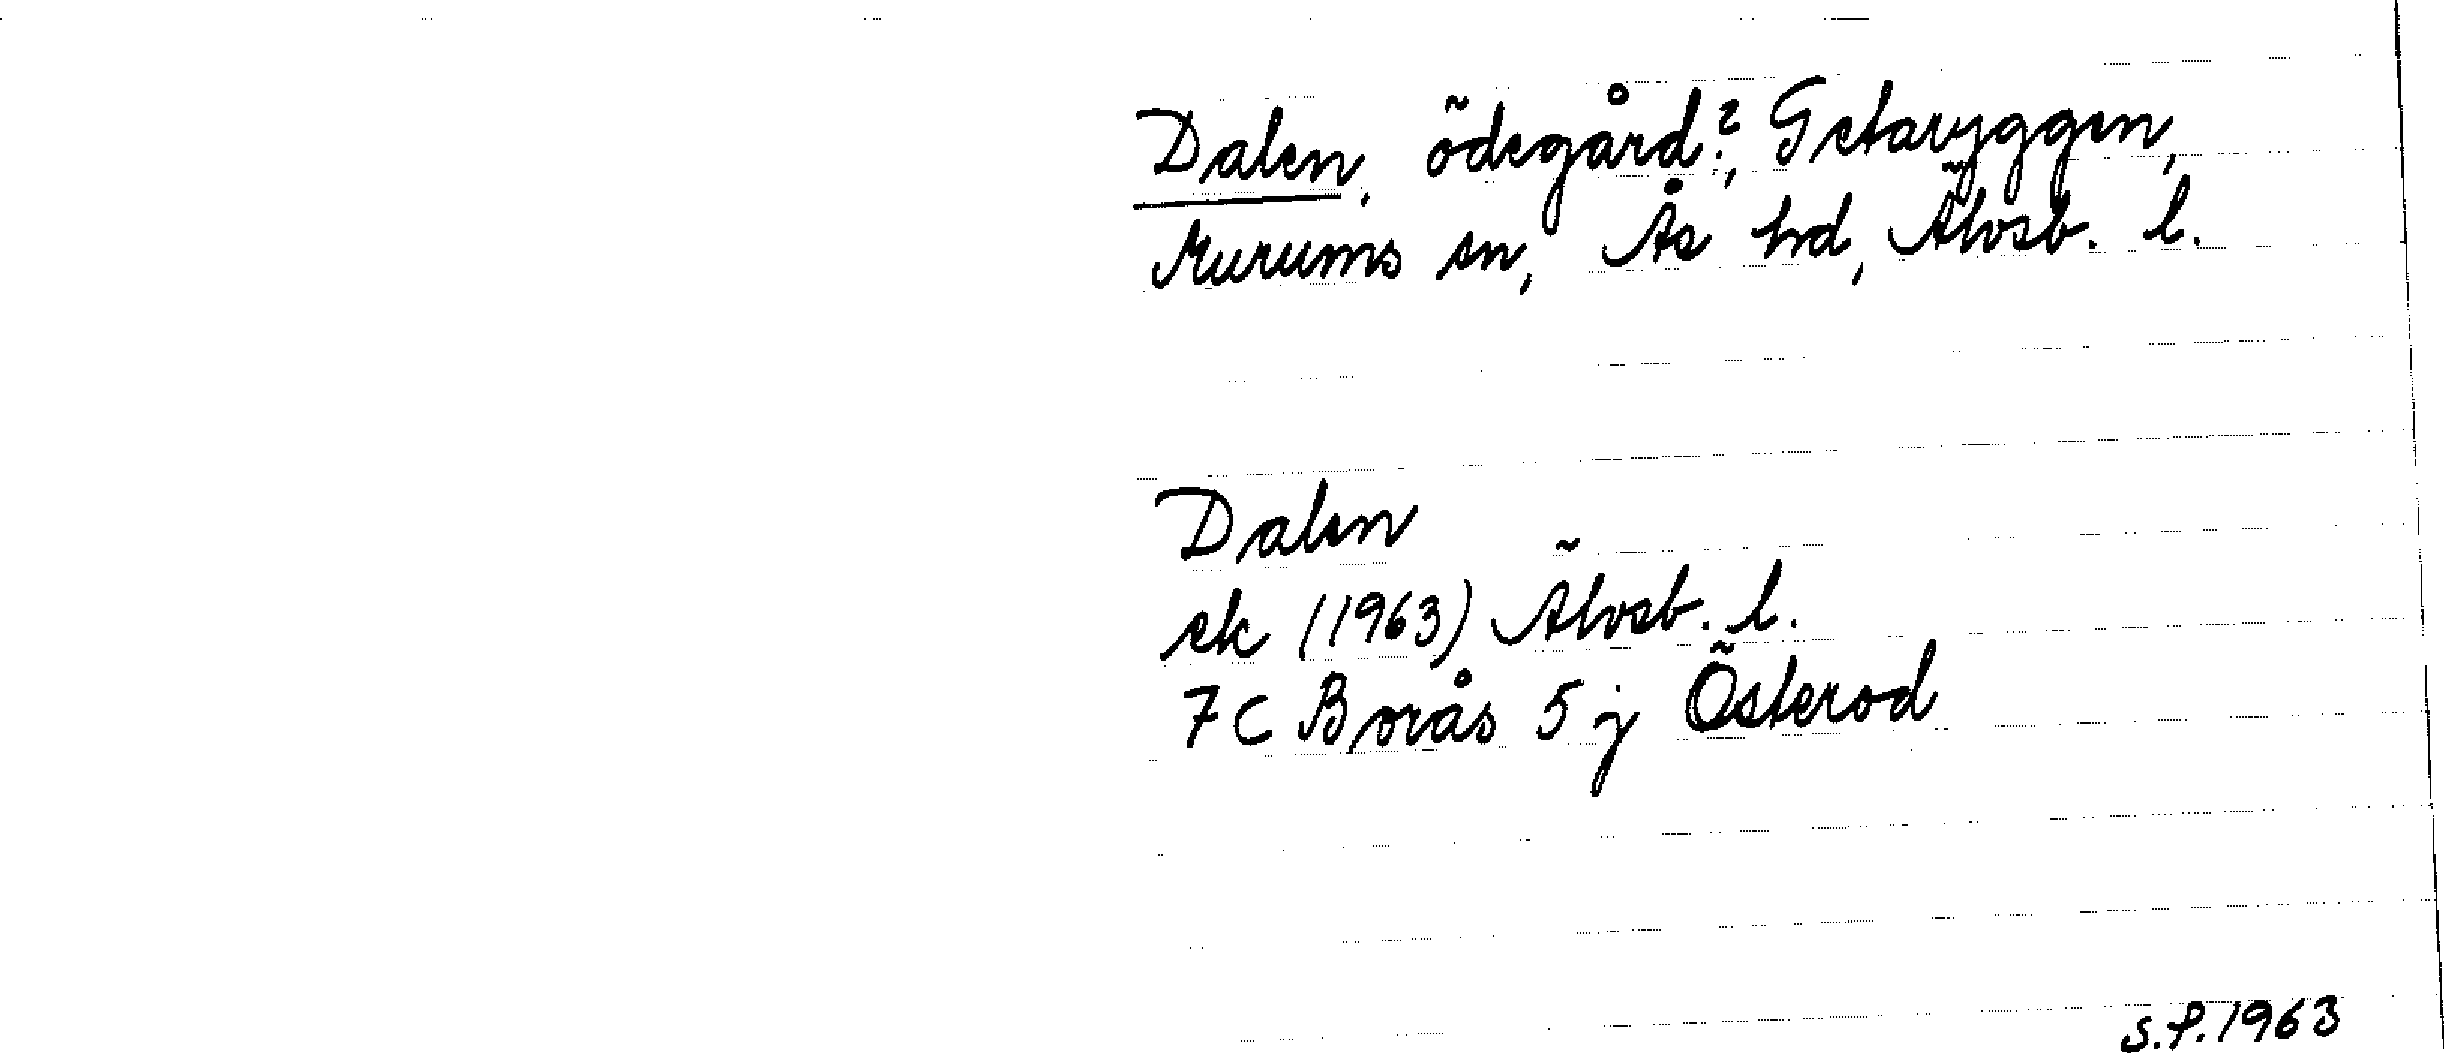 Dalen, ödegård?, Getaryggen,
Murums sn, Ås hd, Älvsb. l.
Dalen
ek (1963) Älvsb. l.
7C Borås 5 j Österod
S.P. 1963